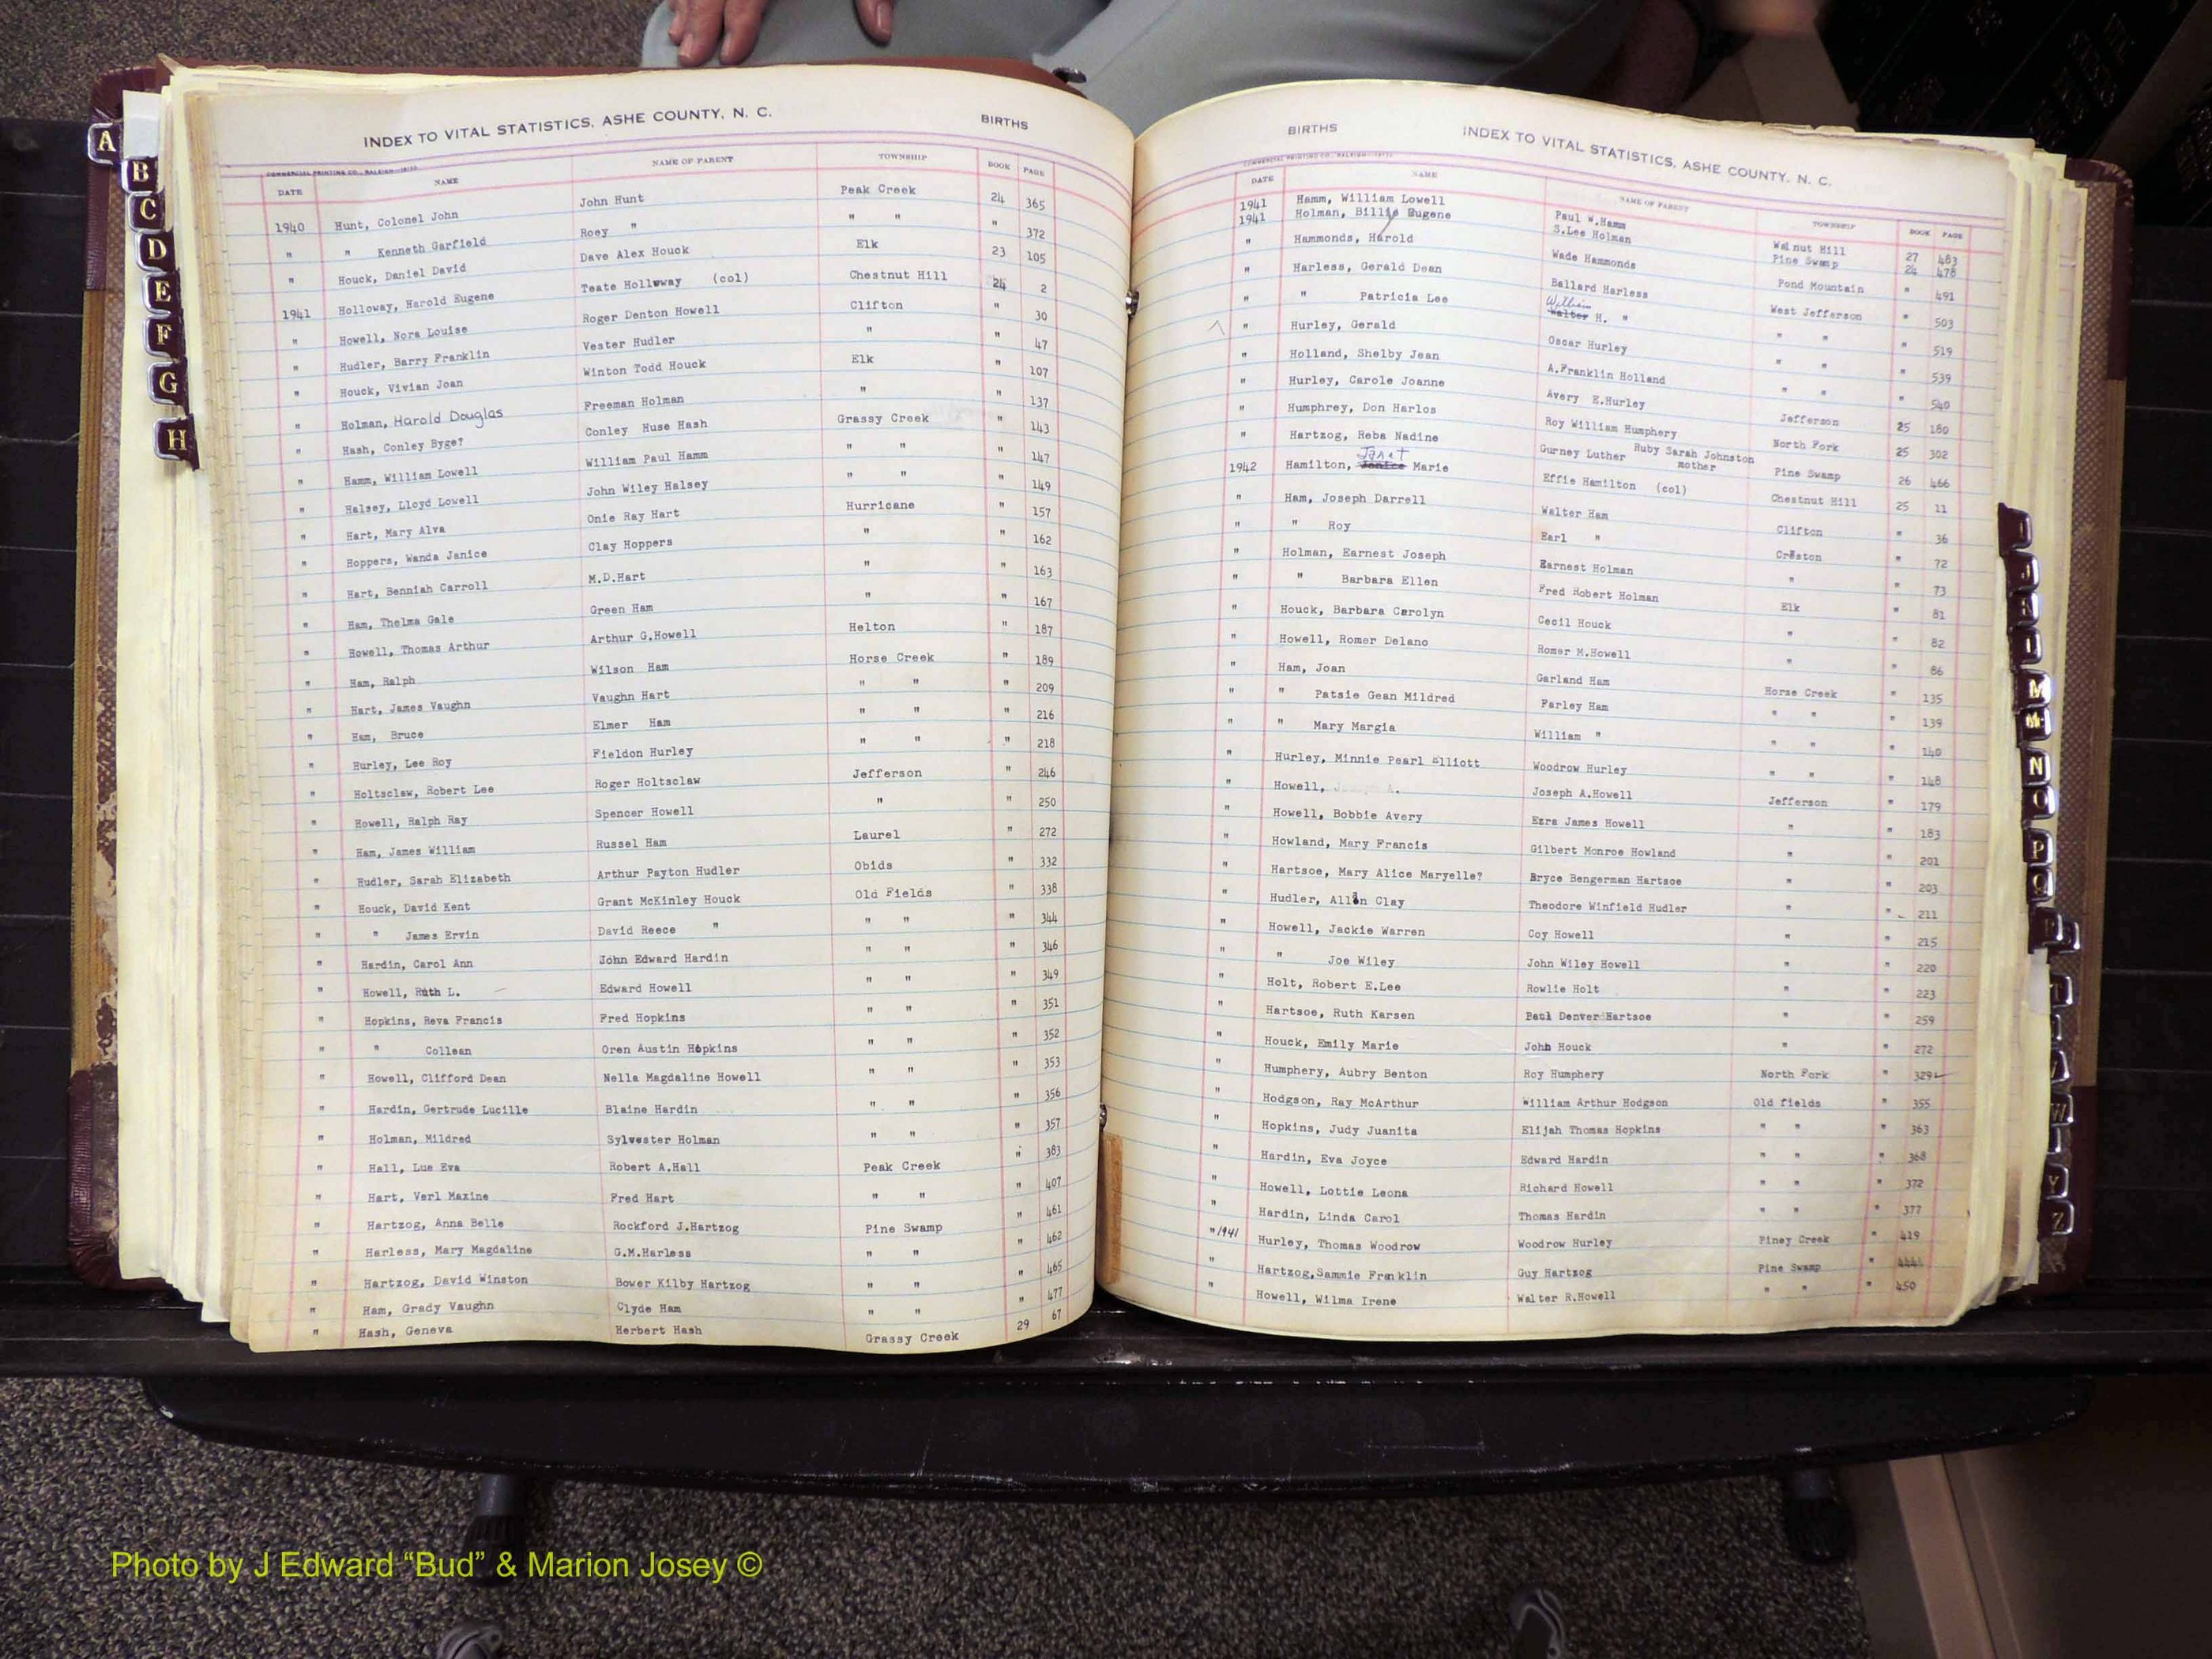 INDEX TO VITAL STATISTICS, ASHE COUNTY, N. C. BIRTHS
COMMERCIAL PRINTING CO., RALEIGH
DATE NAME NAME OF PARENT TOWNSHIP BOOK PAGE
1940 Hunt, Colonel John John Hunt Peak Creek 24 365
" " Kenneth Garfield Roey " " " " 372
" Houck, Daniel David Dave Alex Houck Elk 23 105
1941 Holloway, Harold Eugene Teate Holloway (col) Chestnut Hill 24 2
" Howell, Nora Louise Roger Denton Howell Clifton " 30
" Hudler, Barry Franklin Vester Hudler " " 47
" Houck, Vivian Joan Winton Todd Houck Elk " 107
" Holman, Harold Douglas Freeman Holman " " 137
" Hash, Conley Byge? Conley Huse Hash Grassy Creek " 143
" Hamm, William Lowell William Paul Hamm " " " 147
" Halsey, Lloyd Lowell John Wiley Halsey " " " 149
" Hart, Mary Alva Onie Ray Hart Hurricane " 157
" Hoppers, Wanda Janice Clay Hoppers " " 162
" Hart, Benniah Carroll M.D.Hart " " 163
" Ham, Thelma Gale Green Ham " " 167
" Howell, Thomas Arthur Arthur G.Howell Helton " 187
" Ham, Ralph Wilson Ham Horse Creek " 189
" Hart, James Vaughn Vaughn Hart " " " 209
" Ham, Bruce Elmer Ham " " " 216
" Hurley, Lee Roy Fieldon Hurley " " " 218
" Holtsclaw, Robert Lee Roger Holtsclaw Jefferson " 246
" Howell, Ralph Ray Spencer Howell " " 250
" Ham, James William Russel Ham Laurel " 272
" Hudler, Sarah Elizabeth Arthur Payton Hudler Obids " 332
" Houck, David Kent Grant McKinley Houck Old Fields " 338
" " James Ervin David Reece " " " " 344
" Hardin, Carol Ann John Edward Hardin " " " 346
" Howell, Ruth L. Edward Howell " " " 349
" Hopkins, Reva Francis Fred Hopkins " " " 351
" " Collean Oren Austin Hopkins " " " 352
" Howell, Clifford Dean Nella Magdaline Howell " " " 353
" Hardin, Gertrude Lucille Blaine Hardin " " " 356
" Holman, Mildred Sylvester Holman " " " 357
" Hall, Lue Eva Robert A.Hall Peak Creek " 383
" Hart, Verl Maxine Fred Hart " " " 407
" Hartzog, Anna Belle Rockford J.Hartzog Pine Swamp " 461
" Harless, Mary Magdaline G.M.Harless " " " 462
" Hartzog, David Winston Bower Kilby Hartzog " " " 465
" Ham, Grady Vaughn Clyde Ham " " " 477
" Hash, Geneva Herbert Hash Grassy Creek 29 67
BIRTHS INDEX TO VITAL STATISTICS, ASHE COUNTY, N. C.
COMMERCIAL PRINTING CO., RALEIGH
DATE NAME NAME OF PARENT TOWNSHIP BOOK PAGE
1941 Hamm, William Lowell Paul W.Hamm Walnut Hill 27 483
1941 Holman, Billie Eugene S.Lee Holman Pine Swamp 24 478
" Hammonds, Harold Wade Hammonds Pond Mountain " 491
" Harless, Gerald Dean Ballard Harless West Jefferson " 503
" " Patricia Lee William Walter H. " " " " 519
" Hurley, Gerald Oscar Hurley " " " 539
" Holland, Shelby Jean A.Franklin Holland " " " 540
" Hurley, Carole Joanne Avery E.Hurley Jefferson 25 180
" Humphrey, Don Harlos Roy William Humphery North Fork 25 302
" Hartzog, Reba Nadine Gurney Luther Ruby Sarah Johnston mother Pine Swamp 26 466
1942 Hamilton, Janet Janice Marie Effie Hamilton (col) Chestnut Hill 25 11
" Ham, Joseph Darrell Walter Ham Clifton " 36
" " Roy Earl " Creston " 72
" Holman, Earnest Joseph Earnest Holman " " 73
" " Barbara Ellen Fred Robert Holman Elk " 81
" Houck, Barbara Carolyn Cecil Houck " " 82
" Howell, Romer Delano Romer M.Howell " " 86
" Ham, Joan Garland Ham Horse Creek " 135
" " Patsie Gean Mildred Farley Ham " " " 139
" " Mary Margia William " " " " 140
" Hurley, Minnie Pearl Elliott Woodrow Hurley " " " 148
" Howell, Joseph A.Howell Jefferson " 179
" Howell, Bobbie Avery Ezra James Howell " " 183
" Howland, Mary Francis Gilbert Monroe Howland " " 201
" Hartsoe, Mary Alice Maryelle? Bryce Bengerman Hartsoe " " 203
" Hudler, Allen Clay Theodore Winfield Hudler " " 211
" Howell, Jackie Warren Coy Howell " " 215
" " Joe Wiley John Wiley Howell " " 220
" Holt, Robert E.Lee Rowlie Holt " " 223
" Hartsoe, Ruth Karsen Paul Denver Hartsoe " " 259
" Houck, Emily Marie John Houck " " 272
" Humphery, Aubry Benton Roy Humphery North Fork " 329
" Hodgson, Ray McArthur William Arthur Hodgson Old fields " 355
" Hopkins, Judy Juanita Elijah Thomas Hopkins " " " 363
" Hardin, Eva Joyce Edward Hardin " " " 368
" Howell, Lottie Leona Richard Howell " " " 372
" Hardin, Linda Carol Thomas Hardin " " " 377
"1941 Hurley, Thomas Woodrow Woodrow Hurley Piney Creek " 419
" Hartzog,Sammie Franklin Guy Hartzog Pine Swamp "
" Howell, Wilma Irene Walter R.Howell " " " 450
A
B
C
D
E
F
G
H
M
N
O
P
Q
T
W
Y
Z
Photo by J Edward “Bud” & Marion Josey ©